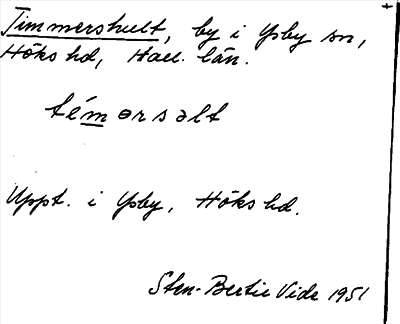 Timmershult, by i Ysby sn,
Höks hd, Hall. län.
témərsəlt
Uppt. i Ysby, Höks hd.
Sten-Bertil Vide 1951